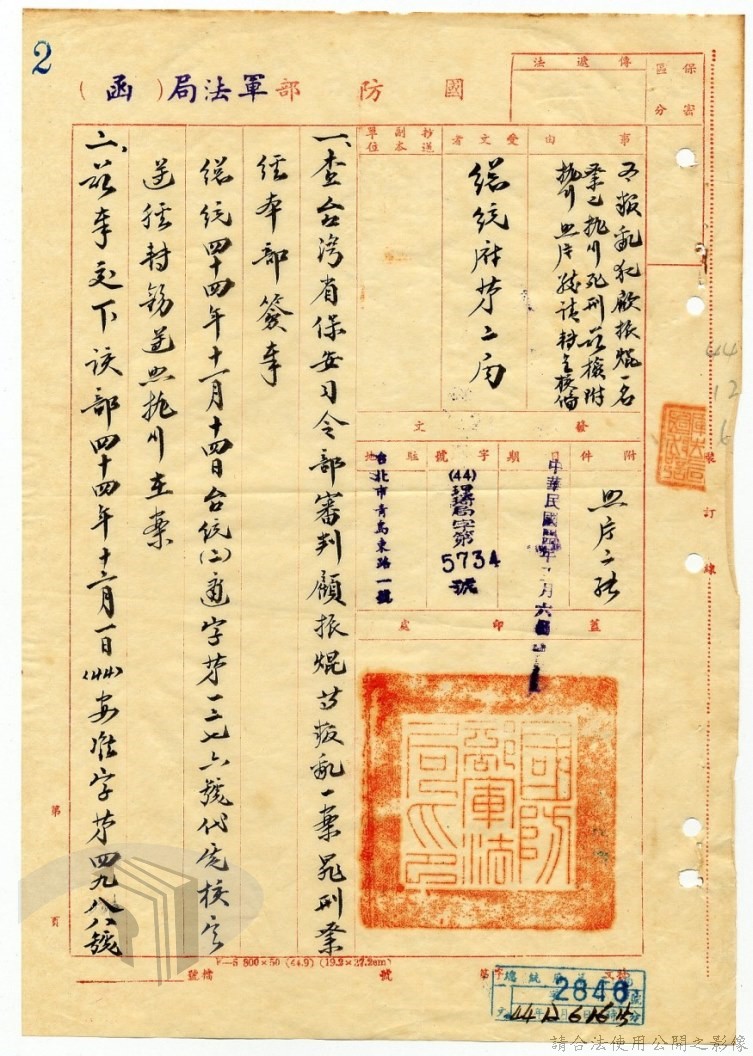 2
國防部軍法局(函)
保密區分
傳遞法
事由
為叛亂犯顧振焜一名
業已執行死刑茲檢附
執行照片敬請轉呈核備
受文者
總統府第二局
抄送副本單位
發文
附件
照片二張
日期
中華民國四十四年十二月六日
字號
(44)
字第
5734
號
駐地
台北市青島東路一號
蓋印處
國防部軍法局印
一、查台灣省保安司令部審判顧振焜等叛亂一案死刑業
經本部簽奉
總統四十四年十一月十四日台統(二)適字第一三七六號代電核定
遵經轉飭遵照執行在案
二、茲奉交下該部四十四年十二月一日(44)安准字第四九八八號
裝
訂
線
44
12
6
第
頁
F—5 800×50 (44.9) (19.2×27.2cm)
檔號
字第
號
總統府
2846
44 12 6 16
請合法使用公開之影像